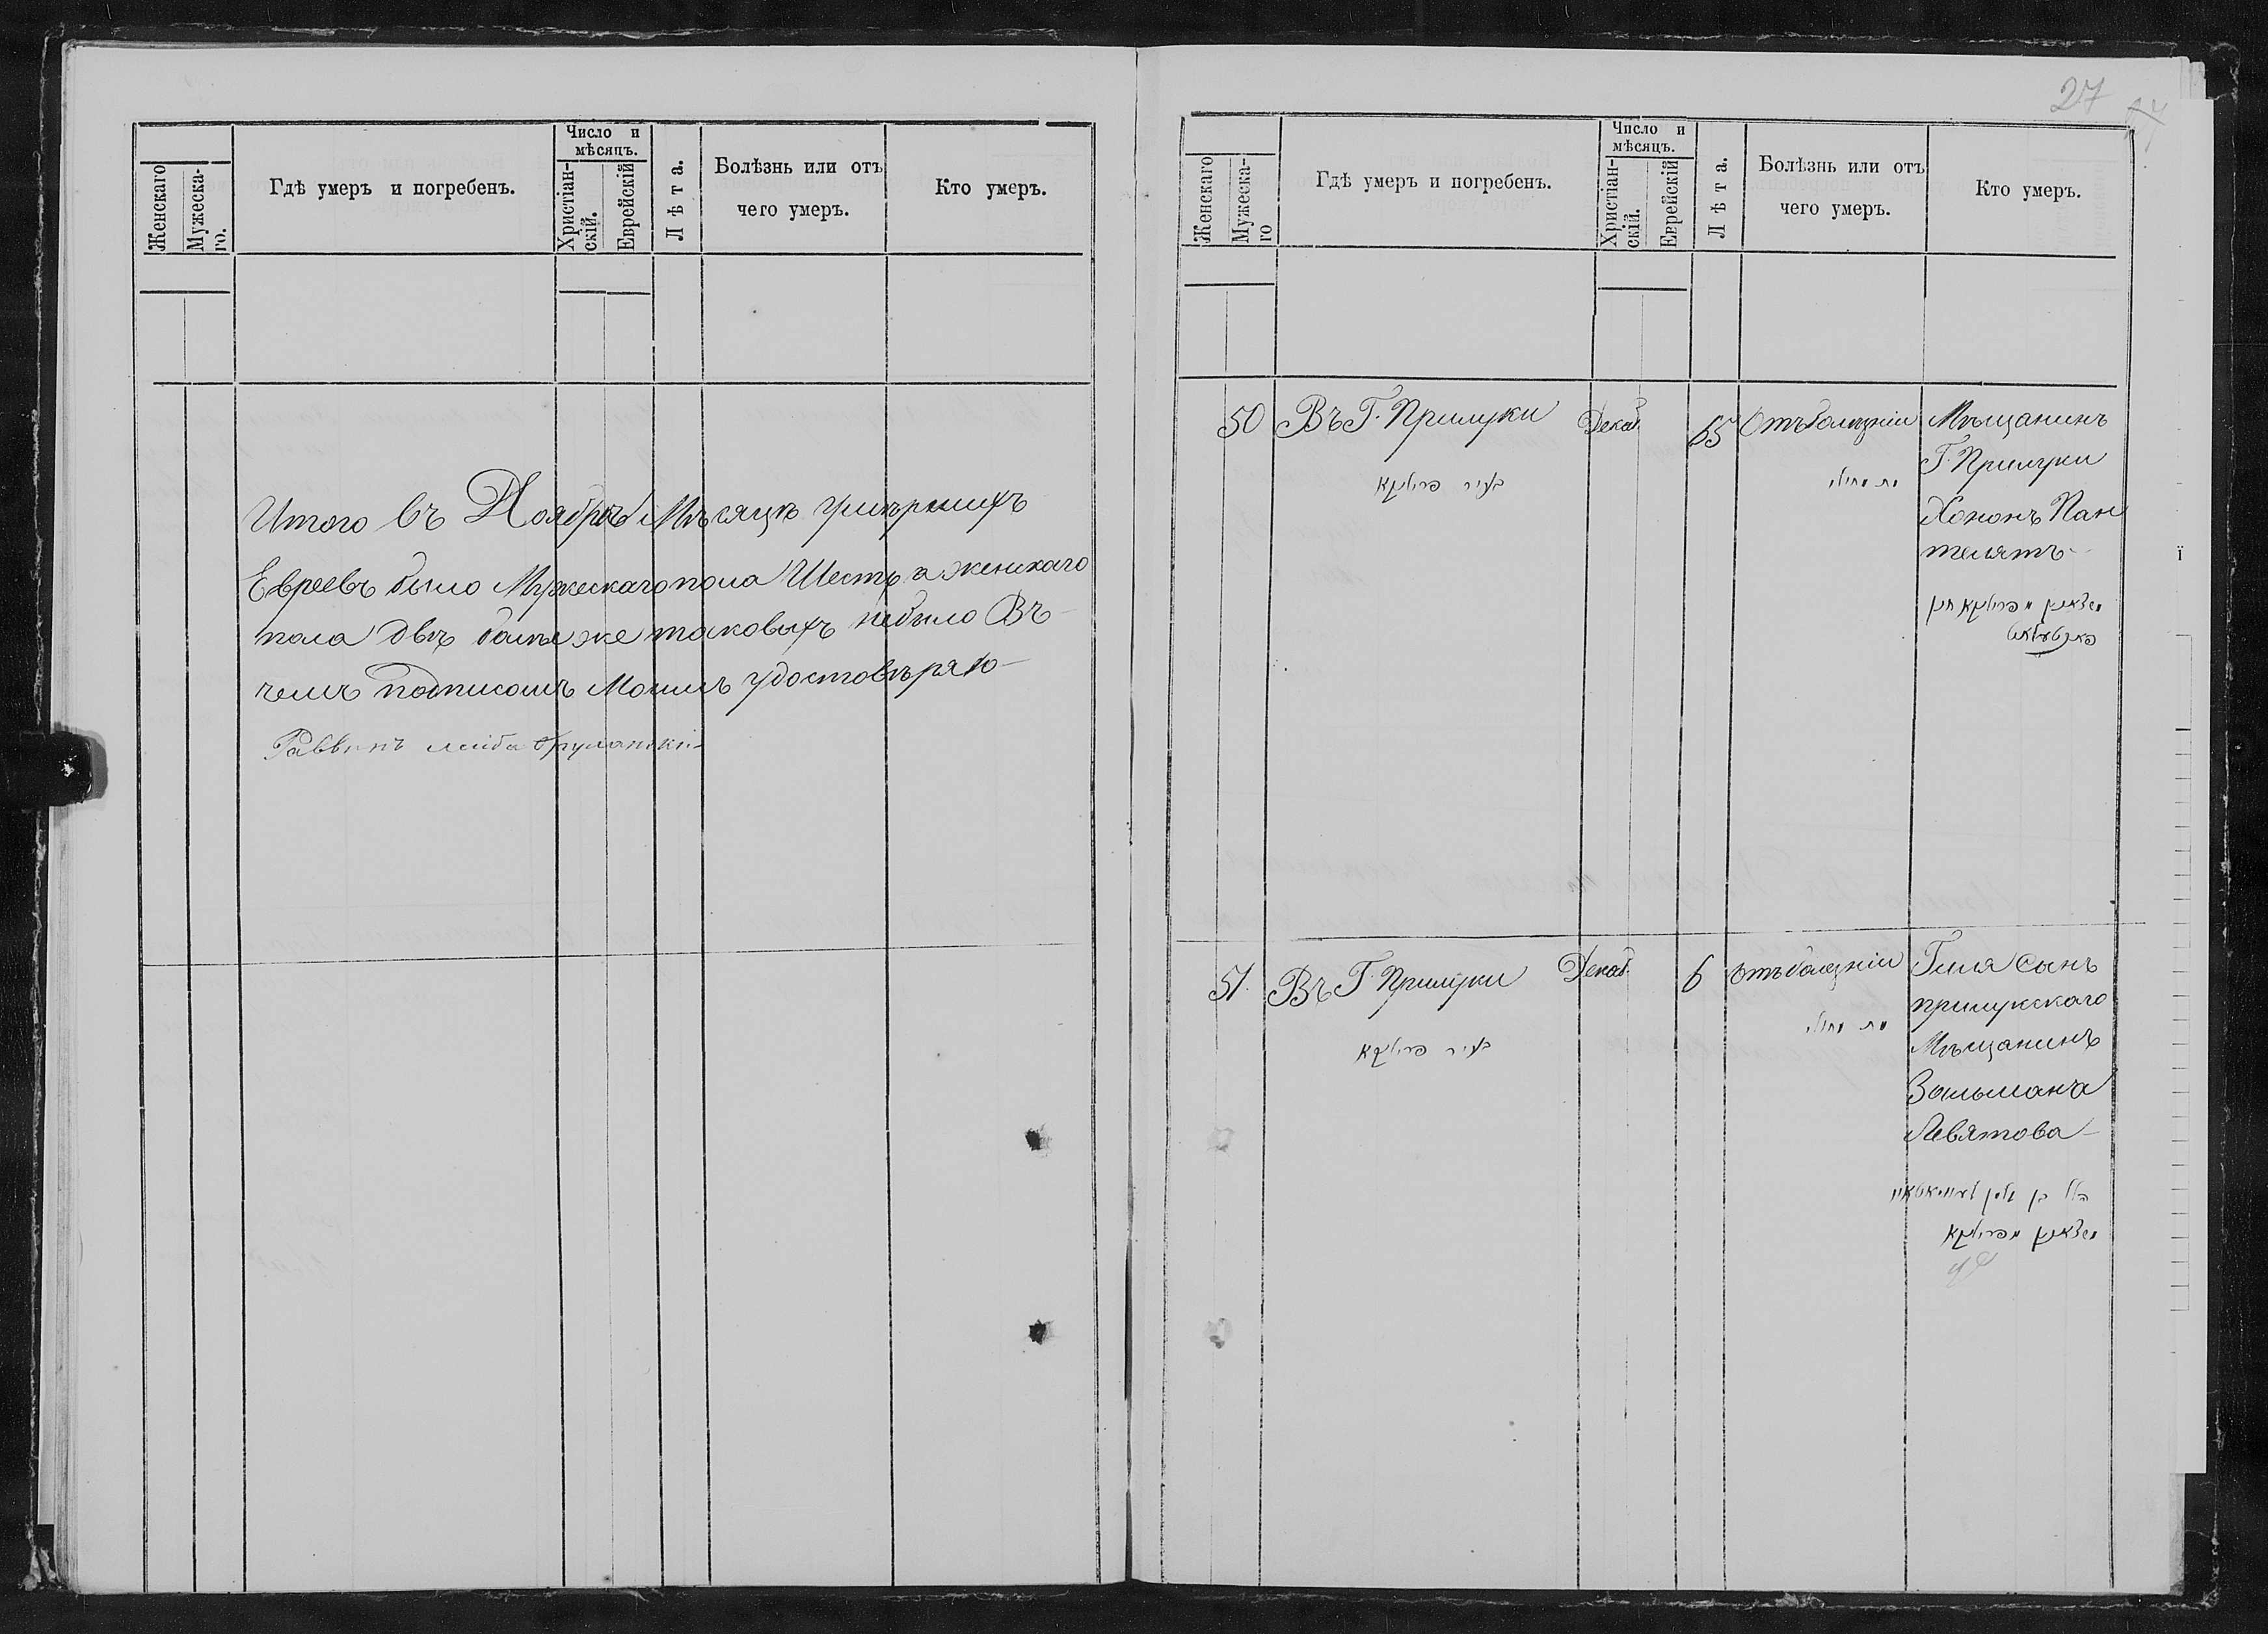 Женскаго
Мужеска-
го.
Гдѣ умеръ и погребенъ.
Число и
мѣсяцъ.
Христіан-
скій.
Еврейскій
Лѣта.
Болѣзнь или отъ
чего умеръ.
Кто умеръ.
Итого въ Ноябрѣ Мѣсяцѣ умѣршихъ
Евреевъ было Мужескаго пола Шесть а женскаго
пола двѣ болѣе же таковыхъ небыло Въ
чемъ подписомъ Моимъ удостовѣряю
Раввинъ
27
Женскаго
Мужеска-
го
Гдѣ умеръ и погребенъ.
Число и
мѣсяцъ.
Христіан-
скій.
Еврейскій
Лѣта.
Болѣзнь или отъ
чего умеръ.
Кто умеръ.
50 Въ Г. Прилуки Декаб. 65 Отъ болѣзніи Мѣщанинъ
Г. Прилуки
Хононъ Пан
телятъ
בעיר פרילוקא
51. Въ Г. Прилуки Декаб. 6 отъ болезніи Гиля сынъ
прилукскаго
Мѣщанинъ
Зальмана
Левятова
בעיר פרילוקא